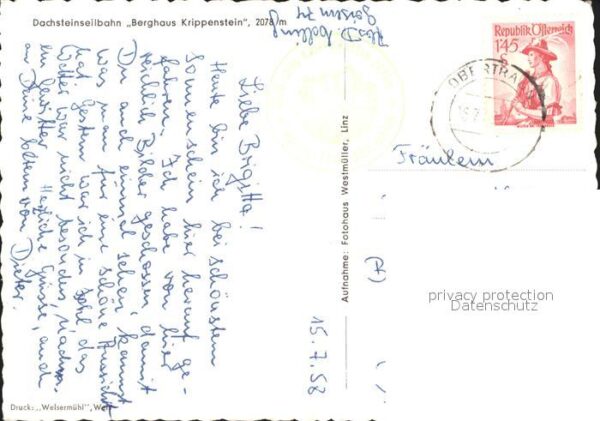 Dachsteinseilbahn „Berghaus Krippenstein", 2078 m
Liebe Brigitta!
Heute bin ich bei schönstem
Sonnenschein hier herauf ge-
fahren. Ich habe von hier
reichlich Bilder geschossen, damit
Du auch einmal sehen kannst
was man für eine schöne Aussicht
hat. Gestern war ich in
das
Wetter war nicht besonders. Nachm.
ein Gewitter. Herzliche Grüsse, auch
an Deine Eltern von Dieter.
15.7.58
Aufnahme: Fotohaus Westmüller, Linz
Druck: „Welsermühl", Wels
Republik Österreich
1'45
S
OBERTRA
Fräulein
privacy protection
Datenschutz